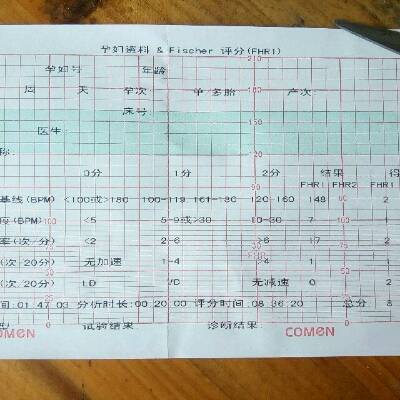 孕妇资料 & Fischer 评分(FHR1)
孕妇号 年龄
周 天 孕次 单/多胎 产次:
床号:
医生:
称:
0分 1分 2分 结果 得
FHR1 FHR2 FHR1
基线(BPM) <100或>180 100-119 161-180 120-160 148 2
度(BPM) <5 5-9或>30 10-30 7 1
率(次/分) <2 2-6 >6 17 2
(次/20分) 无加速 1-4 >4 1 1
(次/20分) LD VD 无减速 0 2
间:01:47:03 分析时长:00:20:00 评分时间:08:36:20 总分 8
型 试验结果 诊断结果:
210
COMEN COMEN